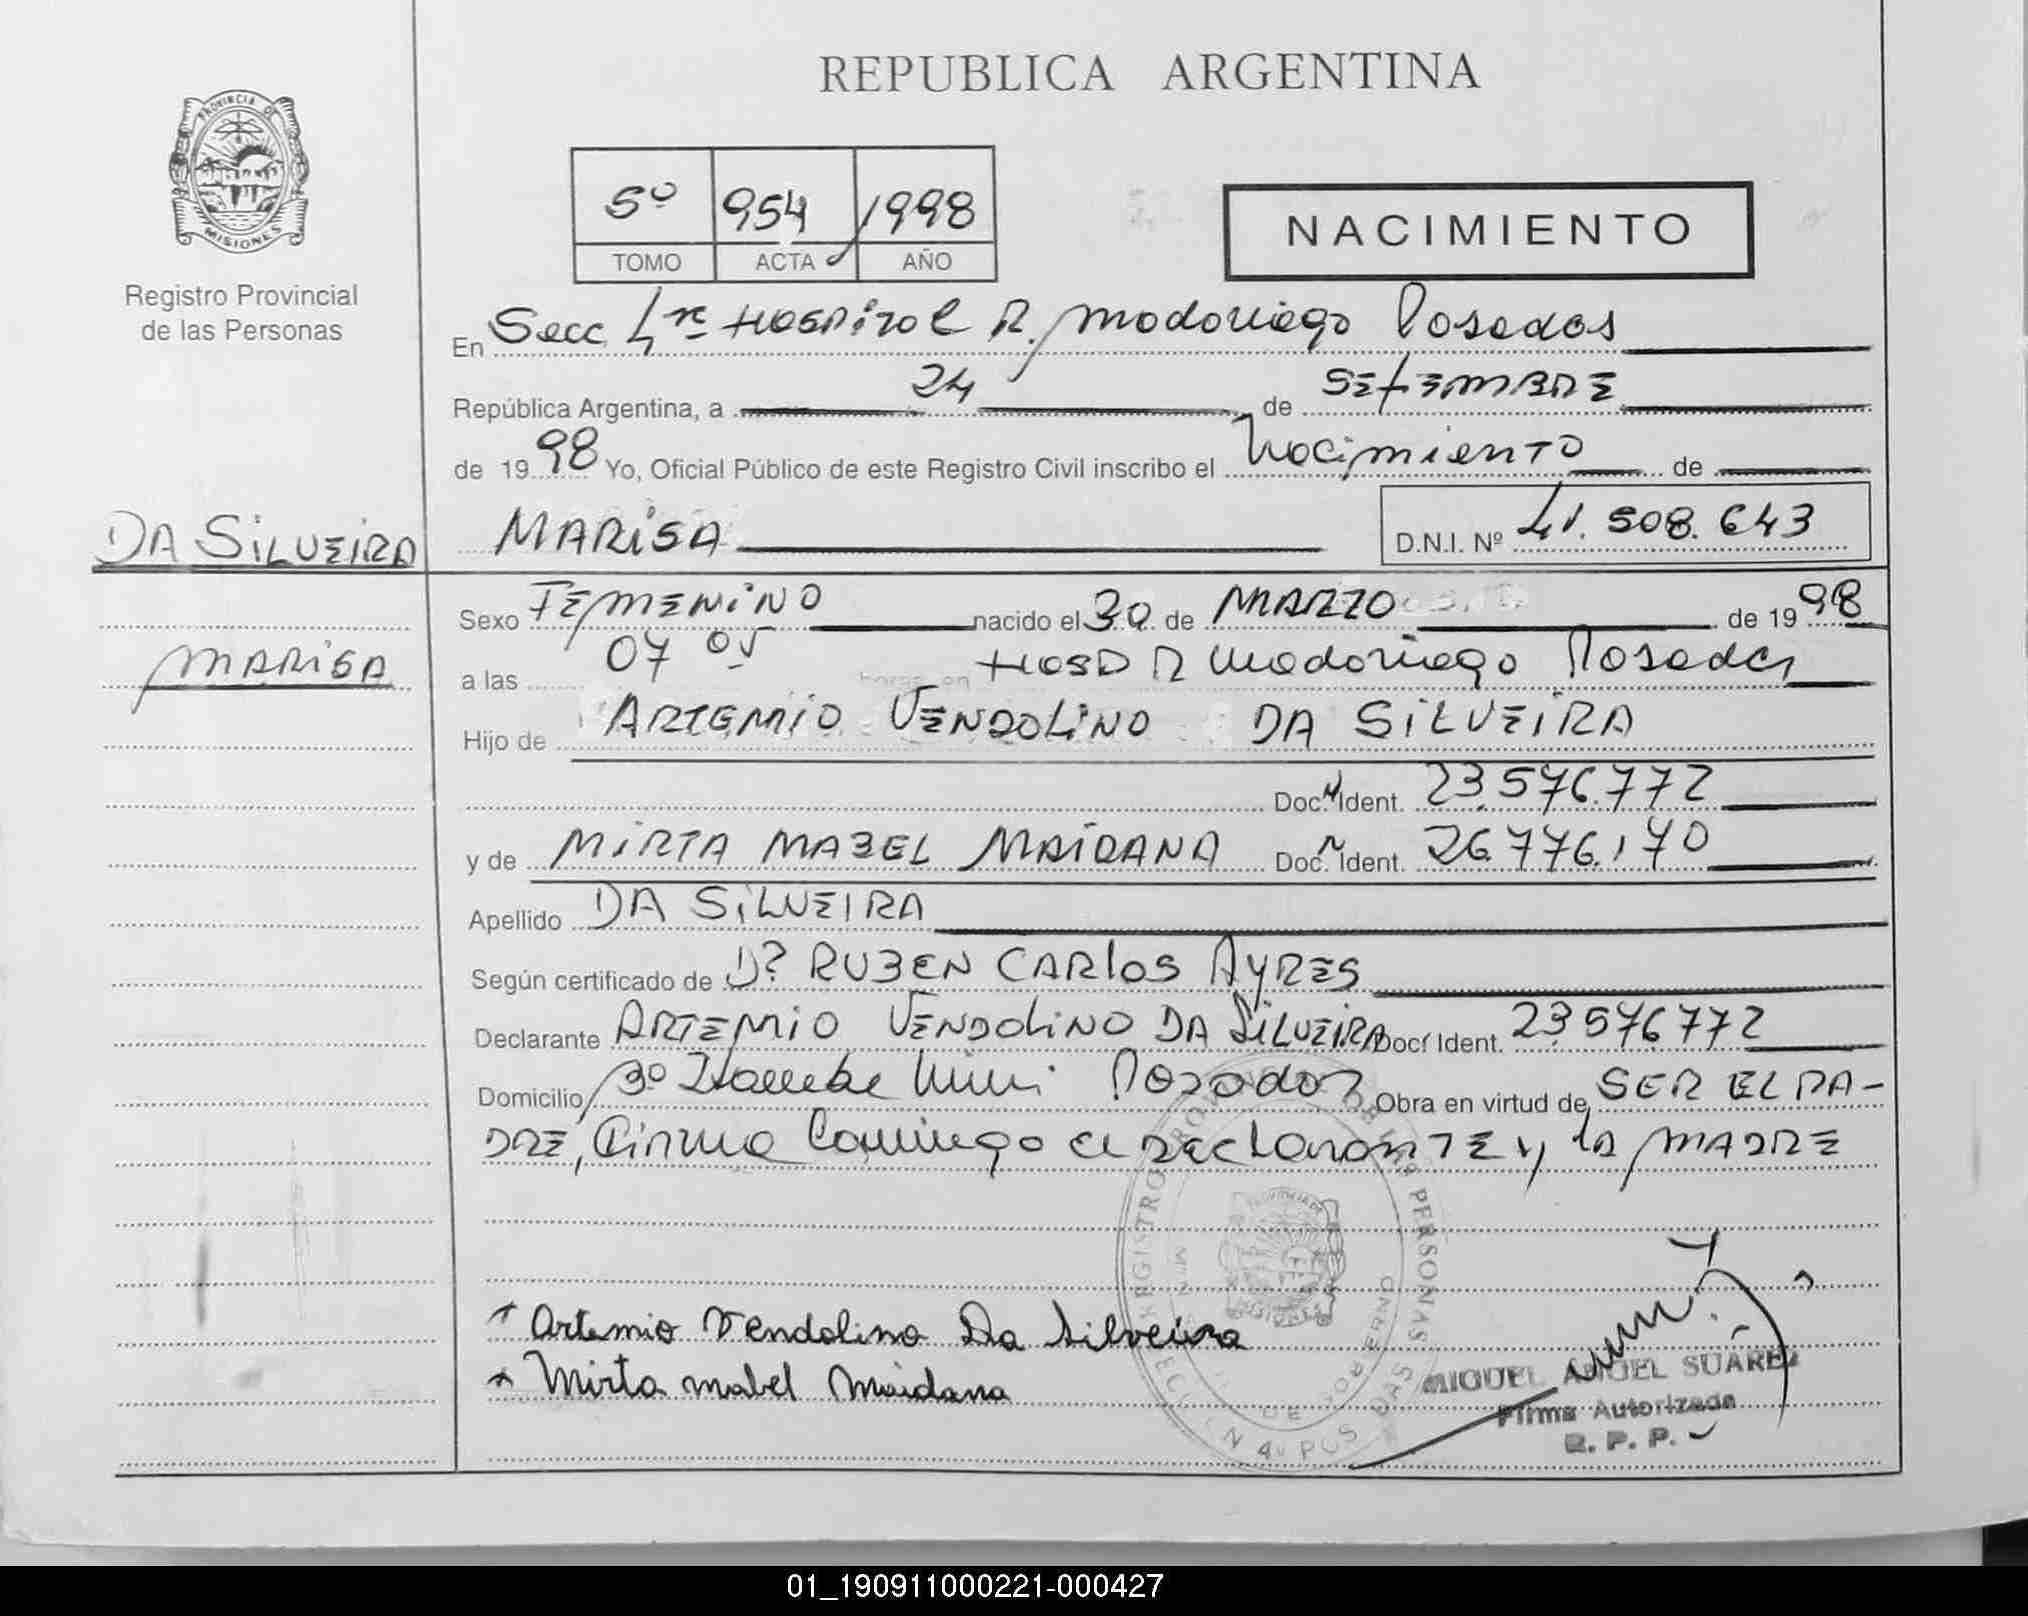 REPUBLICA ARGENTINA
PROVINCIA DE
MISIONES
Registro Provincial
de las Personas
5º 954 1998
TOMO ACTA AÑO
NACIMIENTO
En Secc 4ª Hospital R. Madariaga Posadas
República Argentina, a 24 de SETIEMBRE
de 1998 Yo, Oficial Público de este Registro Civil inscribo el Nacimiento de
DA SILVEIRA MARISA D.N.I. Nº 41.508.643
Sexo FEMENINO nacido el 30 de MARZO de 1998
MARISA
a las 07 05 horas en Hosp R Madariaga Posadas
Hijo de ARTEMIO VENDOLINO DA SILVEIRA
Doc. Ident. 23.576.772
y de MIRTA MABEL MAIDANA Doc. Ident. 26.776.170
Apellido DA SILVEIRA
Según certificado de Dr RUBEN CARLOS AYRES
Declarante ARTEMIO VENDOLINO DA SILVEIRA Doc. Ident. 23.576.772
Domicilio Posadas Obra en virtud de SER EL PA-
DRE, Firma Conmigo el DECLARANTE y la MADRE
Artemio Vendolino Da Silveira
Mirta mabel Maidana
MIGUEL ANGEL SUAREZ
Firma Autorizada
R. P. P.
01_190911000221-000427